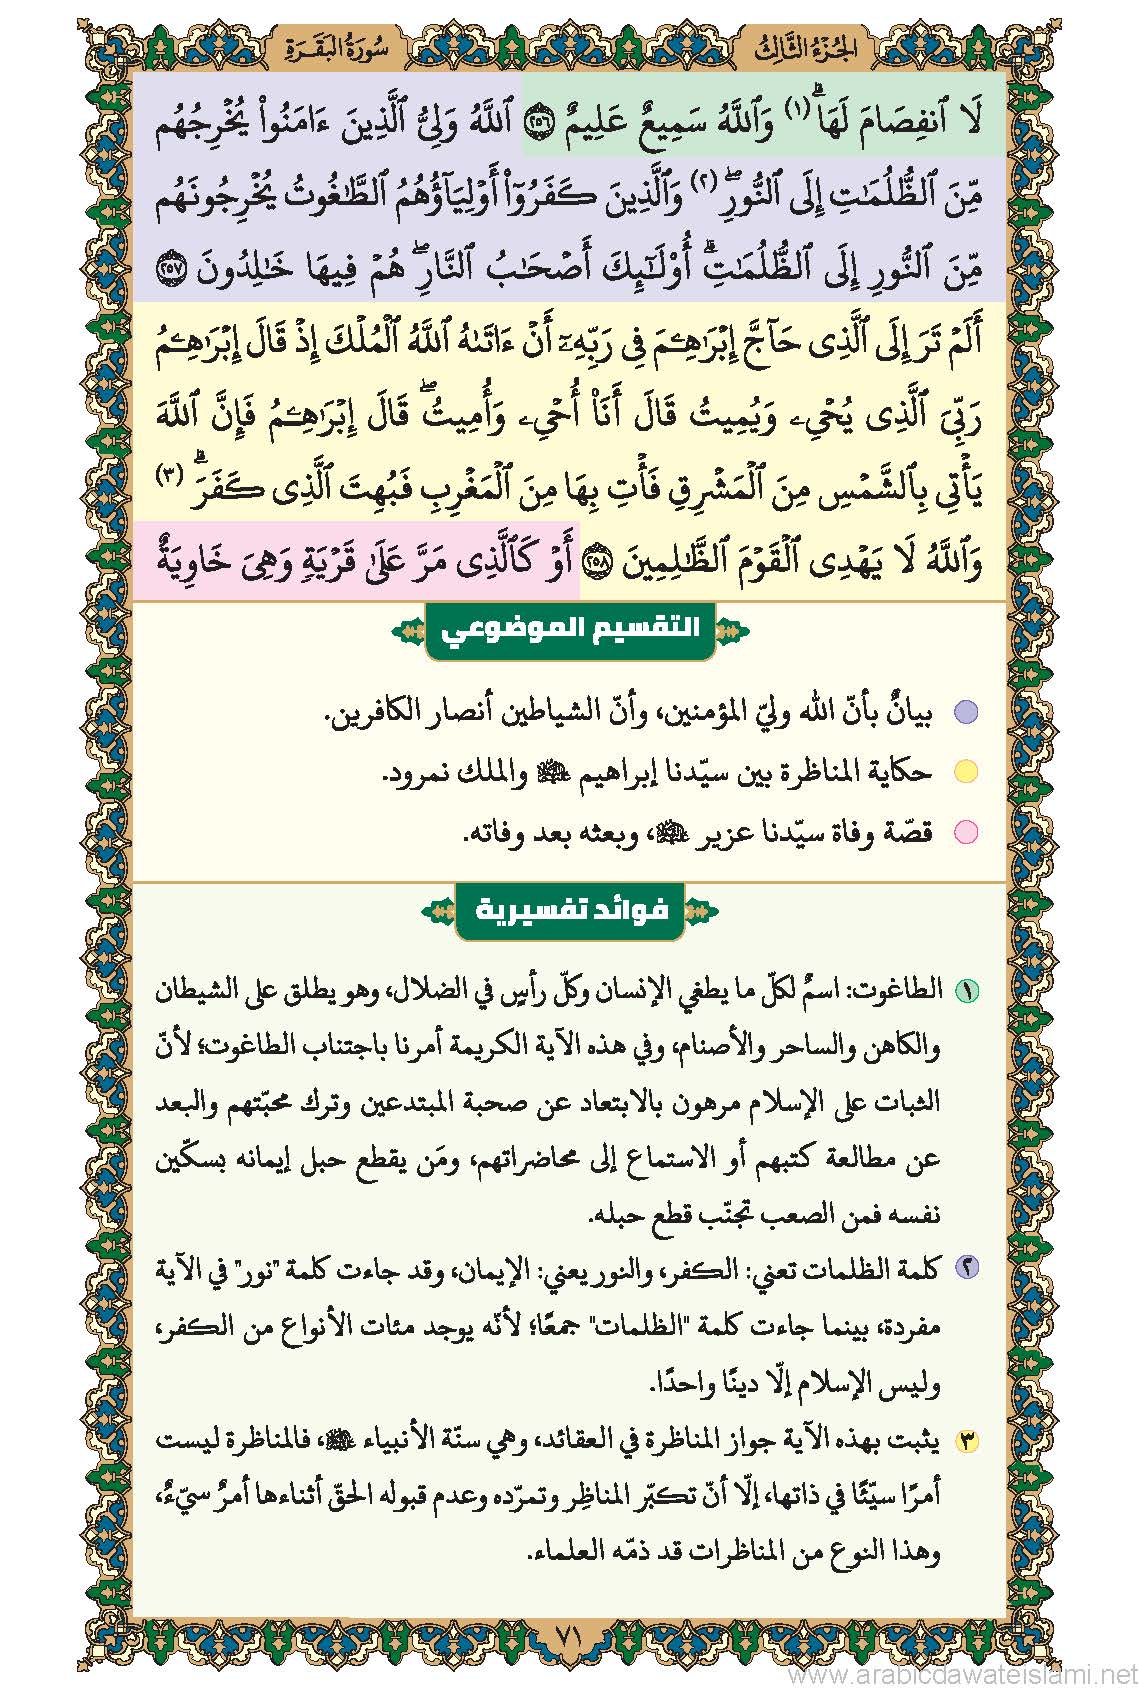 الجُزْءُ الثَّالِثُ
سُورَةُ البَقَرَةِ
لَا ٱنفِصَامَ لَهَاۗ (١) وَٱللَّهُ سَمِيعٌ عَلِيمٌ ٢٥٦ ٱللَّهُ وَلِيُّ ٱلَّذِينَ ءَامَنُواْ يُخْرِجُهُم
مِّنَ ٱلظُّلُمَٰتِ إِلَى ٱلنُّورِۖ (٢) وَٱلَّذِينَ كَفَرُوٓاْ أَوْلِيَآؤُهُمُ ٱلطَّٰغُوتُ يُخْرِجُونَهُم
مِّنَ ٱلنُّورِ إِلَى ٱلظُّلُمَٰتِۗ أُوْلَٰٓئِكَ أَصْحَٰبُ ٱلنَّارِۖ هُمْ فِيهَا خَٰلِدُونَ ٢٥٧
أَلَمْ تَرَ إِلَى ٱلَّذِى حَآجَّ إِبْرَٰهِـۧمَ فِى رَبِّهِۦٓ أَنْ ءَاتَىٰهُ ٱللَّهُ ٱلْمُلْكَ إِذْ قَالَ إِبْرَٰهِـۧمُ
رَبِّىَ ٱلَّذِى يُحْىِۦ وَيُمِيتُ قَالَ أَنَا۠ أُحْىِۦ وَأُمِيتُۖ قَالَ إِبْرَٰهِـۧمُ فَإِنَّ ٱللَّهَ
يَأْتِى بِٱلشَّمْسِ مِنَ ٱلْمَشْرِقِ فَأْتِ بِهَا مِنَ ٱلْمَغْرِبِ فَبُهِتَ ٱلَّذِى كَفَرَۗ (٣)
وَٱللَّهُ لَا يَهْدِى ٱلْقَوْمَ ٱلظَّٰلِمِينَ ٢٥٨ أَوْ كَٱلَّذِى مَرَّ عَلَىٰ قَرْيَةٍ وَهِىَ خَاوِيَةٌ
التقسيم الموضوعي
بيانٌ بأنّ الله وليّ المؤمنين، وأنّ الشياطين أنصار الكافرين.
حكاية المناظرة بين سيّدنا إبراهيم عليه السلام والملك نمرود.
قصّة وفاة سيّدنا عزير عليه السلام، وبعثه بعد وفاته.
فوائد تفسيرية
١ الطاغوت: اسمٌ لكلّ ما يطغي الإنسان وكلّ رأسٍ في الضلال، وهو يطلق على الشيطان
والكاهن والساحر والأصنام، وفي هذه الآية الكريمة أمرنا باجتناب الطاغوت؛ لأنّ
الثبات على الإسلام مرهون بالابتعاد عن صحبة المبتدعين وترك محبّتهم والبعد
عن مطالعة كتبهم أو الاستماع إلى محاضراتهم، ومَن يقطع حبل إيمانه بسكّين
نفسه فمن الصعب تجنّب قطع حبله.
٢ كلمة الظلمات تعني: الكفر، والنور يعني: الإيمان، وقد جاءت كلمة "نور" في الآية
مفردة، بينما جاءت كلمة "الظلمات" جمعًا؛ لأنّه يوجد مئات الأنواع من الكفر،
وليس الإسلام إلّا دينًا واحدًا.
٣ يثبت بهذه الآية جواز المناظرة في العقائد، وهي سنّة الأنبياء عليهم السلام، فالمناظرة ليست
أمرًا سيّئًا في ذاتها، إلّا أنّ تكبّر المناظِر وتمرّده وعدم قبوله الحقّ أثناءها أمرٌ سيّءٌ،
وهذا النوع من المناظرات قد ذمّه العلماء.
٧١
www.arabicdawateislami.net